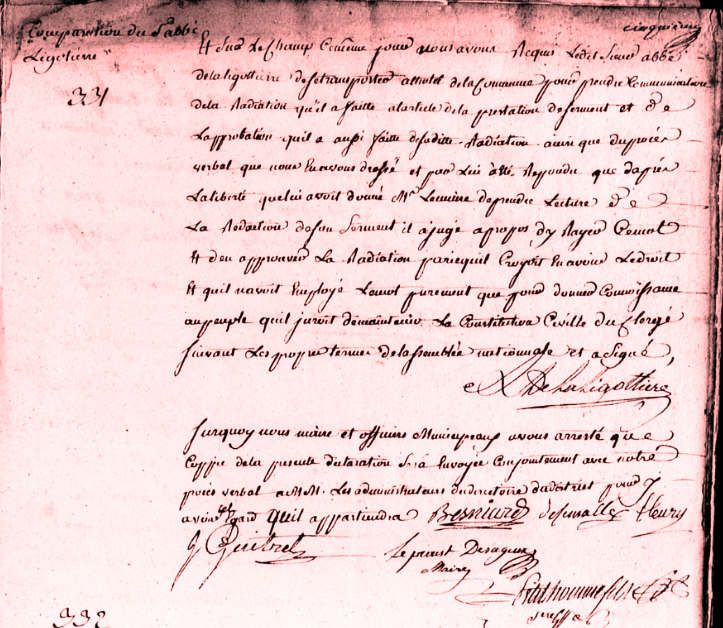 Comparution du S. abbé
Legotiere
cinquieme
331
Et sur Le Champ Comme jour nous avons Requis Ledit Sieur abbé
de la gottiere de se transporter a lhotel de la Commune pour prendre Communication
de la Radiation qu'il a faitte a larticle de la prestation de serment et de
Lapprobation quil a aussi faitte de saditte Radiation ainsi que du procés
verbal que nous En avons dressé et par Lui a été Repondu que daprés
La liberté que lui avoit donné Mr Lemaire de prendre Lecture de
La Redaction de son serment il a jugé apropos dy Rayer Cemot
Et den approuver La Radiation parcequil Croyoit En avoir Ledroit
Et quil navoit Employé Lemot purement que pour donner Connoissance
au peuple quil juroit de maintenir La Constitution Civille du Clergé
suivant Les propre termes de lassemblée nationnale et a Signé,
De La Ligottiere
Surquoy nous maire et officiers Municipaux avons arresté que
Coppie de la presente declaration Sera Envoyée Conjointement avec notre
procés verbal a MM. Les administrateurs du directoire du district pour y
avoir Egard Queil appartiendra Besniard fleury
Guitrel
Desageux
Maire
332